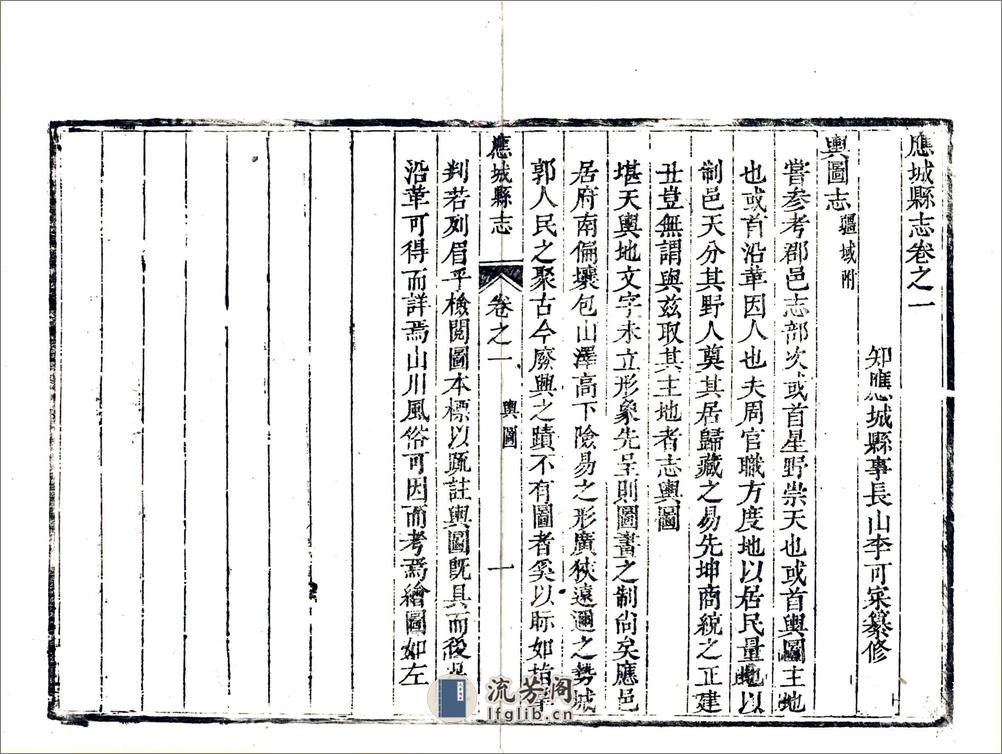 應城縣志卷之一
知應城縣事長山李可寀纂修
輿圖志 疆域附
嘗參考郡邑志部次或首星野崇天也或首輿圖主地
也或首沿革因人也夫周官職方度地以居民量地以
制邑天分其野人奠其居歸藏之易先坤商統之正建
丑豈無謂與兹取其主地者志輿圖
堪天輿地文字未立形象先呈則圖書之制尚矣應邑
居府南偏壤包山澤高下險易之形廣狹遠邇之勢城
郭人民之聚古今廢興之蹟不有圖者奚以眎如指掌
應城縣志 卷之一 輿圖 一
判若列眉乎檢閱圖本標以疏註輿圖旣具而後
沿革可得而詳焉山川風俗可因而考焉繪圖如左
流芳阁
lfglib.cn